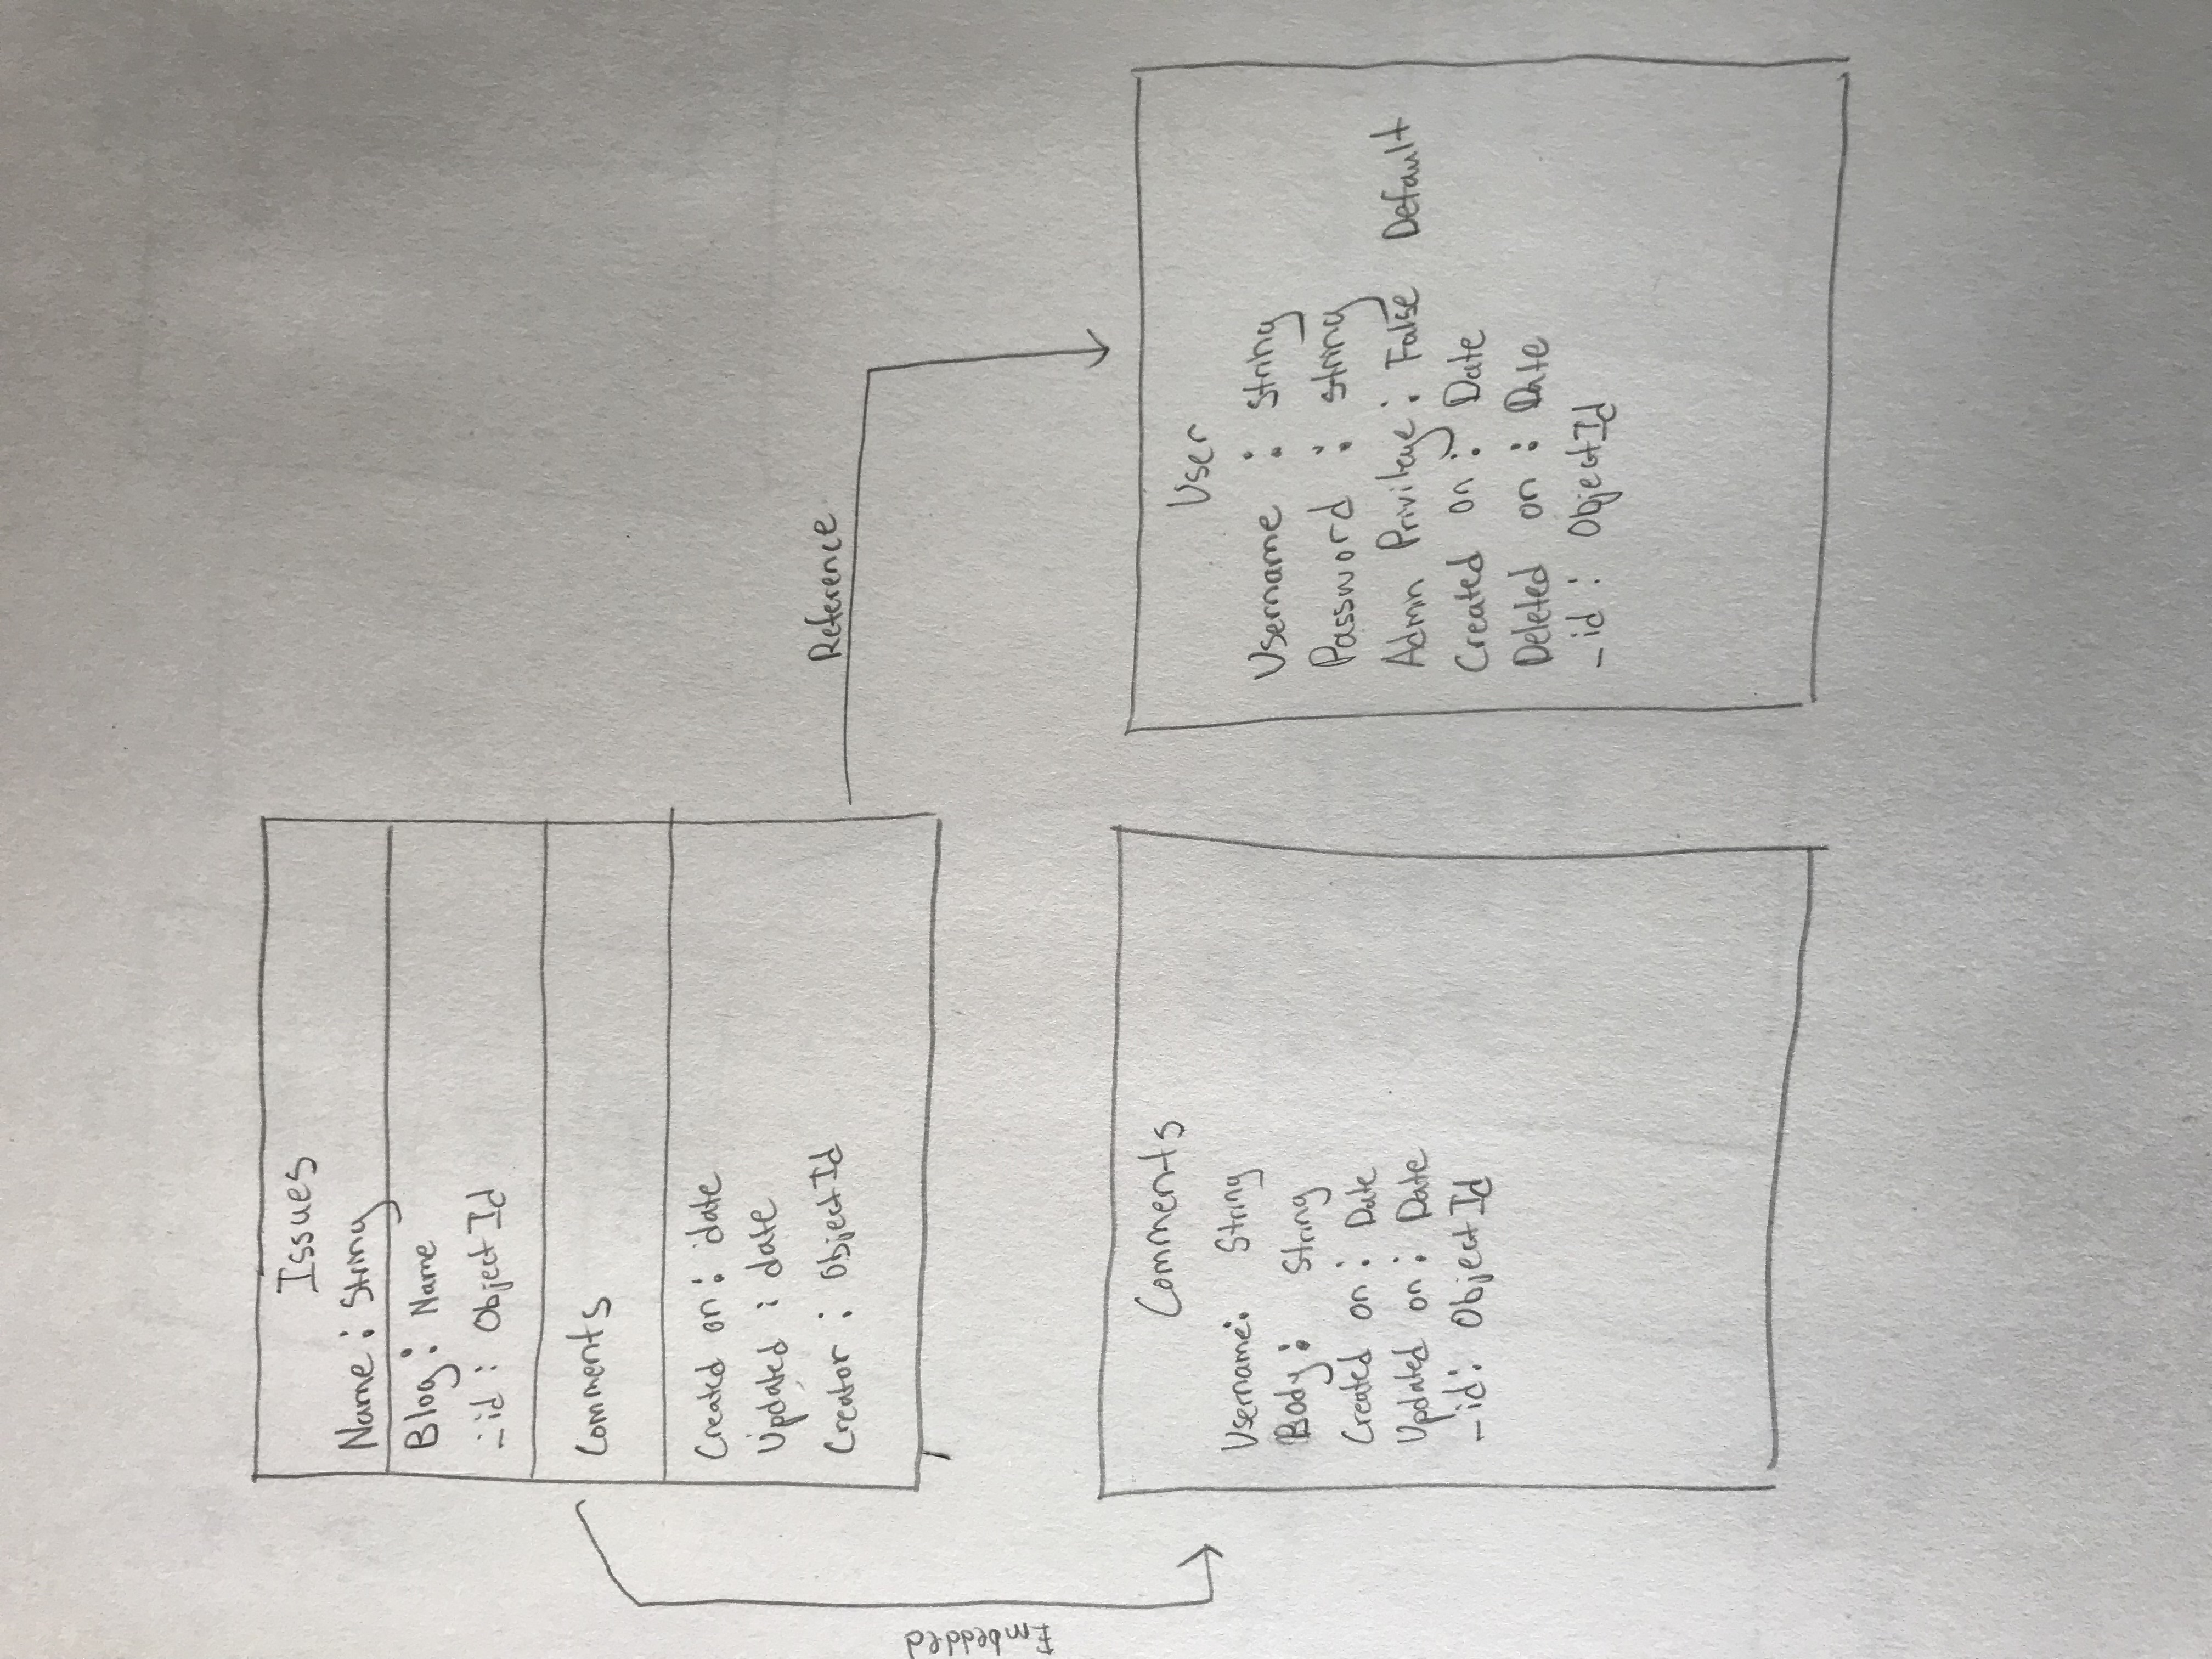 Issues
Name: String
Blog: Name
_id: ObjectId
Comments
Created on: date
Updated: date
Creator: ObjectId
Reference
Embedded
Comments
Username: String
Body: String
Created on: Date
Updated on: Date
_id: ObjectId
User
Username: string
Password: string
Admin Privilege: False Default
Created on: Date
Deleted on: Date
_id: ObjectId